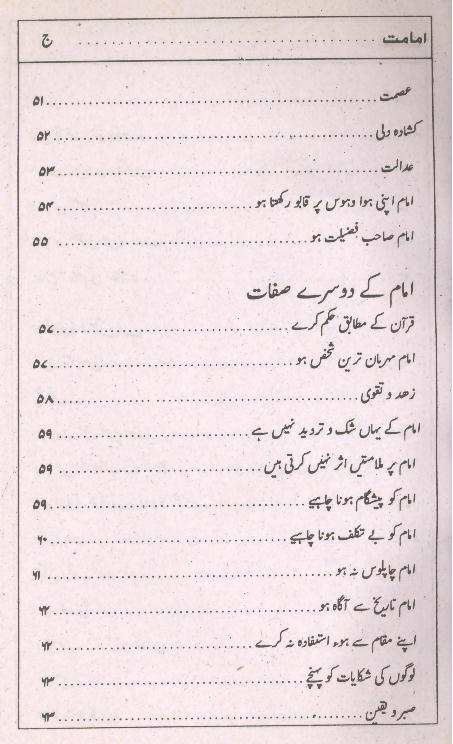 امامت ........................ ج
عصمت ........................ ۵۱
کشادہ دلی ........................ ۵۲
عدالت ........................ ۵۳
امام اپنی ہوا وہوس پر قابو رکھتا ہو ........................ ۵۴
امام صاحب فضیلت ہو ........................ ۵۵
امام کے دوسرے صفات
قرآن کے مطابق حکم کرے ........................ ۵۷
امام مہربان ترین شخص ہو ........................ ۵۷
زھد و تقوی ........................ ۵۸
امام کے یہاں شک و تردید نہیں ہے ........................ ۵۹
امام پر ملامتیں اثر نہیں کرتی ہیں ........................ ۵۹
امام کو پیشگام ہونا چاہیے ........................ ۵۹
امام کو بے تکلف ہونا چاہیے ........................ ۶۰
امام چاپلوس نہ ہو ........................ ۶۱
امام تاریخ سے آگاہ ہو ........................ ۶۲
اپنے مقام سے سوء استفادہ نہ کرے ........................ ۶۲
لوگوں کی شکایات کو پہنچے ........................ ۶۳
صبر و یقین ........................ ۶۳